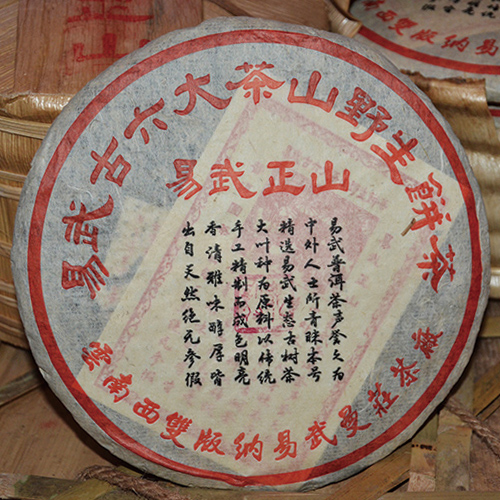 易武古六大茶山野生餅茶
易武正山
易武普洱茶声誉久为
中外人士所青睐本号
精选易武生态古树茶
大叶种为原料以传统
手工精制而成色明亮
香清雅味醇厚皆
出自天然绝无参假
雲南西雙版納易武曼莊茶廠
正山
雲南西雙版納易